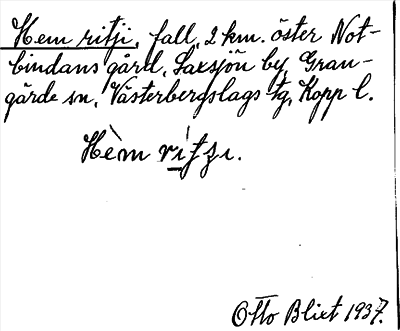 Hem ritji, fall, 2 km. öster Not-
bindans gård, Saxsjön by, Gran-
gärde sn, Västerbergslags tg, Kopp l.
Hèm rítʃı.
Otto Blixt 1937.